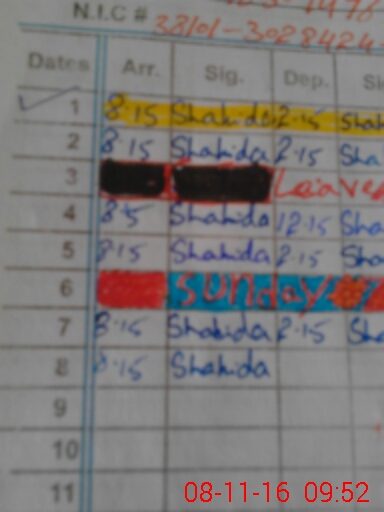 N.I.C # 38101-3028424-
Dates Arr. Sig. Dep. Si
1 8.15 Shahida 2.15 Shah
2 8.15 Shahida 2.15 Sha
3 Leaves
4 8.5 Shahida 12.15 Sha
5 8.15 Shahida 2.15 Sha
6 sunday
7 8.15 Shahida 2.15 Sha
8 8.15 Shahida
9
10
11
08-11-16 09:52